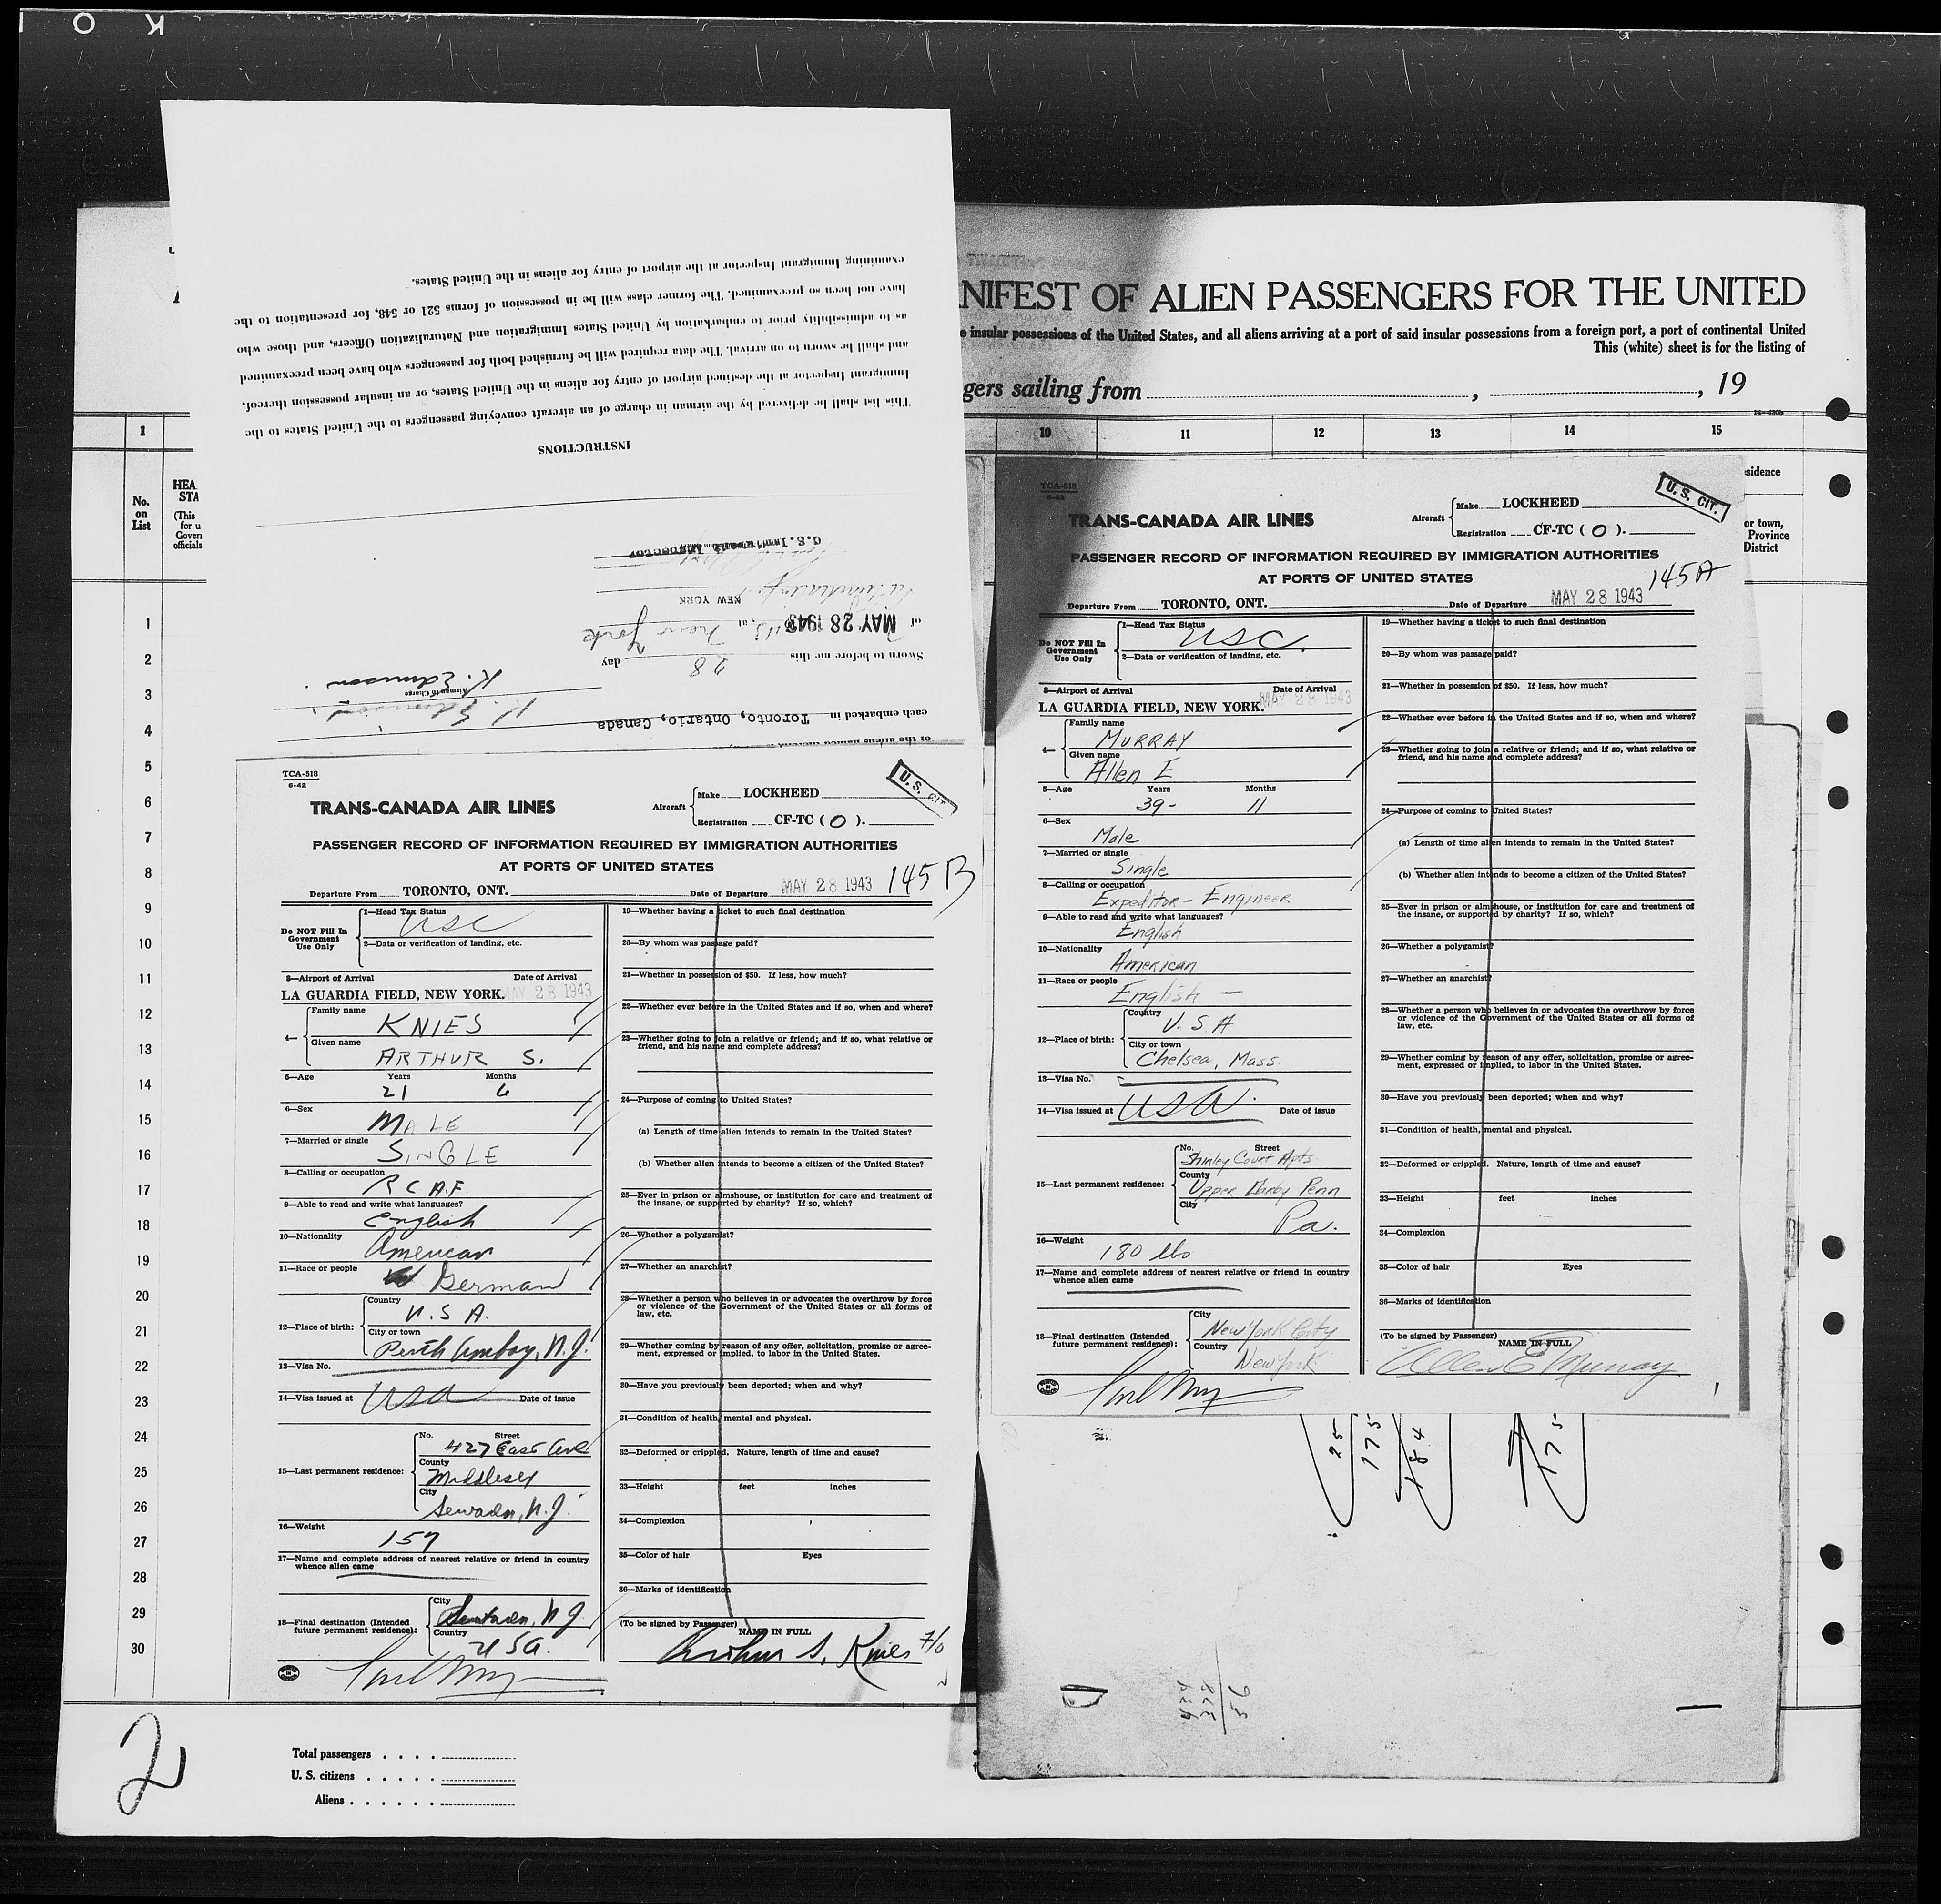 K O
INSTRUCTIONS
This list shall be delivered by the airman in charge of an aircraft conveying passengers to the United States to the
Immigrant Inspector at the destined airport of entry for aliens in the United States, or an insular possession thereof,
and shall be sworn to on arrival. The data required will be furnished both for passengers who have been preexamined
as to admissibility prior to embarkation by United States Immigration and Naturalization Officers, and those who
have not been so preexamined. The former class will be in possession of forms 521 or 548, for presentation to the
examining Immigrant Inspector at the airport of entry for aliens in the United States.
each embarked in Toronto, Ontario, Canada
K. Edmison
Airman in Charge
K. Edmison
Sworn to before me this 28 day
of MAY 28 1943, at New York
NEW YORK
NIFEST OF ALIEN PASSENGERS FOR THE UNITED
e insular possessions of the United States, and all aliens arriving at a port of said insular possessions from a foreign port, a port of continental United
This (white) sheet is for the listing of
gers sailing from , , 19
1 10 11 12 13 14 15
No. on List
HEA
STA
(This
for u
Govern
officials
sidence
or town,
Province
District
1
2
3
4
5
6
7
8
9
10
11
12
13
14
15
16
17
18
19
20
21
22
23
24
25
26
27
28
29
30
TCA-518
6-42
U. S. CIT.
TRANS-CANADA AIR LINES
Aircraft Make LOCKHEED
Registration CF-TC ( O ).
PASSENGER RECORD OF INFORMATION REQUIRED BY IMMIGRATION AUTHORITIES
AT PORTS OF UNITED STATES
145 B
Departure From TORONTO, ONT. Date of Departure MAY 28 1943
Do NOT Fill In
Government
Use Only
1—Head Tax Status USC
2—Data or verification of landing, etc.
3—Airport of Arrival Date of Arrival
LA GUARDIA FIELD, NEW YORK. MAY 28 1943
4— Family name KNIES
Given name ARTHUR S.
5—Age Years 21 Months 6
6—Sex MALE
7—Married or single SINGLE
8—Calling or occupation RCAF
9—Able to read and write what languages? English
10—Nationality American
11—Race or people German
12—Place of birth: Country U.S.A.
City or town Perth Amboy, N.J.
13—Visa No.
14—Visa issued at USA Date of issue
15—Last permanent residence: No. Street 427 East Ave
County Middlesex
City Sewaren, N.J.
16—Weight 157
17—Name and complete address of nearest relative or friend in country
whence alien came
18—Final destination (Intended
future permanent residence): City Sewaren, N J.
Country USA.
19—Whether having a ticket to such final destination
20—By whom was passage paid?
21—Whether in possession of $50. If less, how much?
22—Whether ever before in the United States and if so, when and where?
23—Whether going to join a relative or friend; and if so, what relative or
friend, and his name and complete address?
24—Purpose of coming to United States?
(a) Length of time alien intends to remain in the United States?
(b) Whether alien intends to become a citizen of the United States?
25—Ever in prison or almshouse, or institution for care and treatment of
the insane, or supported by charity? If so, which?
26—Whether a polygamist?
27—Whether an anarchist?
28—Whether a person who believes in or advocates the overthrow by force
or violence of the Government of the United States or all forms of
law, etc.
29—Whether coming by reason of any offer, solicitation, promise or agree-
ment, expressed or implied, to labor in the United States.
30—Have you previously been deported; when and why?
31—Condition of health, mental and physical.
32—Deformed or crippled. Nature, length of time and cause?
33—Height feet inches
34—Complexion
35—Color of hair Eyes
36—Marks of identification
(To be signed by Passenger) NAME IN FULL
Arthur S. Knies F/O
TCA-518
6-42
U. S. CIT.
TRANS-CANADA AIR LINES
Aircraft Make LOCKHEED
Registration CF-TC ( O ).
PASSENGER RECORD OF INFORMATION REQUIRED BY IMMIGRATION AUTHORITIES
AT PORTS OF UNITED STATES
145 A
Departure From TORONTO, ONT. Date of Departure MAY 28 1943
Do NOT Fill In
Government
Use Only
1—Head Tax Status USC.
2—Data or verification of landing, etc.
3—Airport of Arrival Date of Arrival
LA GUARDIA FIELD, NEW YORK. MAY 28 1943
4— Family name MURRAY
Given name Allen E
5—Age Years 39- Months 11
6—Sex Male
7—Married or single Single
8—Calling or occupation Expeditor - Engineer
9—Able to read and write what languages? English
10—Nationality American
11—Race or people English —
12—Place of birth: Country U.S.A
City or town Chelsea, Mass.
13—Visa No.
14—Visa issued at USA. Date of issue
15—Last permanent residence: No. Street Court Apts.
County Upper Darby Penn
City Pa.
16—Weight 180 lbs
17—Name and complete address of nearest relative or friend in country
whence alien came
18—Final destination (Intended
future permanent residence): City New York City
Country New York
19—Whether having a ticket to such final destination
20—By whom was passage paid?
21—Whether in possession of $50. If less, how much?
22—Whether ever before in the United States and if so, when and where?
23—Whether going to join a relative or friend; and if so, what relative or
friend, and his name and complete address?
24—Purpose of coming to United States?
(a) Length of time alien intends to remain in the United States?
(b) Whether alien intends to become a citizen of the United States?
25—Ever in prison or almshouse, or institution for care and treatment of
the insane, or supported by charity? If so, which?
26—Whether a polygamist?
27—Whether an anarchist?
28—Whether a person who believes in or advocates the overthrow by force
or violence of the Government of the United States or all forms of
law, etc.
29—Whether coming by reason of any offer, solicitation, promise or agree-
ment, expressed or implied, to labor in the United States.
30—Have you previously been deported; when and why?
31—Condition of health, mental and physical.
32—Deformed or crippled. Nature, length of time and cause?
33—Height feet inches
34—Complexion
35—Color of hair Eyes
36—Marks of identification
(To be signed by Passenger) NAME IN FULL
Allen E Murray
25
175
184
175
2
Total passengers
U. S. citizens
Aliens